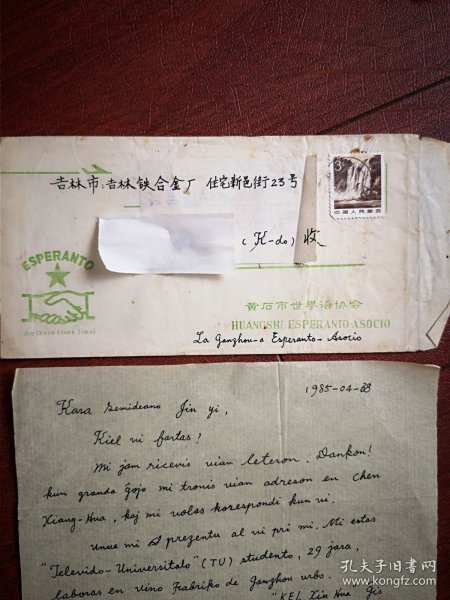 吉林市:吉林铁合金厂 住宅新邑街23号
中国人民邮政
(K-do) 收
ESPERANTO
黄石市世界语协会
HUANGSHI ESPERANTO-ASOCIO
La Ganzhou-a Esperanto-Asocio
1985-04-
Kara Samideano Jin yi,
Kiel vi fartas?
Mi jam ricevis vian leteron. Dankon!
kun granda ĝojo mi trovis vian adreson en Chen
Xiang-Hua, kaj mi volas korespondi kun vi.
Unue mi prezentu al vi pri mi. Mi estas
"Televido-Universitato" (TU) studento, 29 jara,
laboras en vino Fabriko de Ganzhou urbo.
孔夫子旧书网
www.kongfz.com